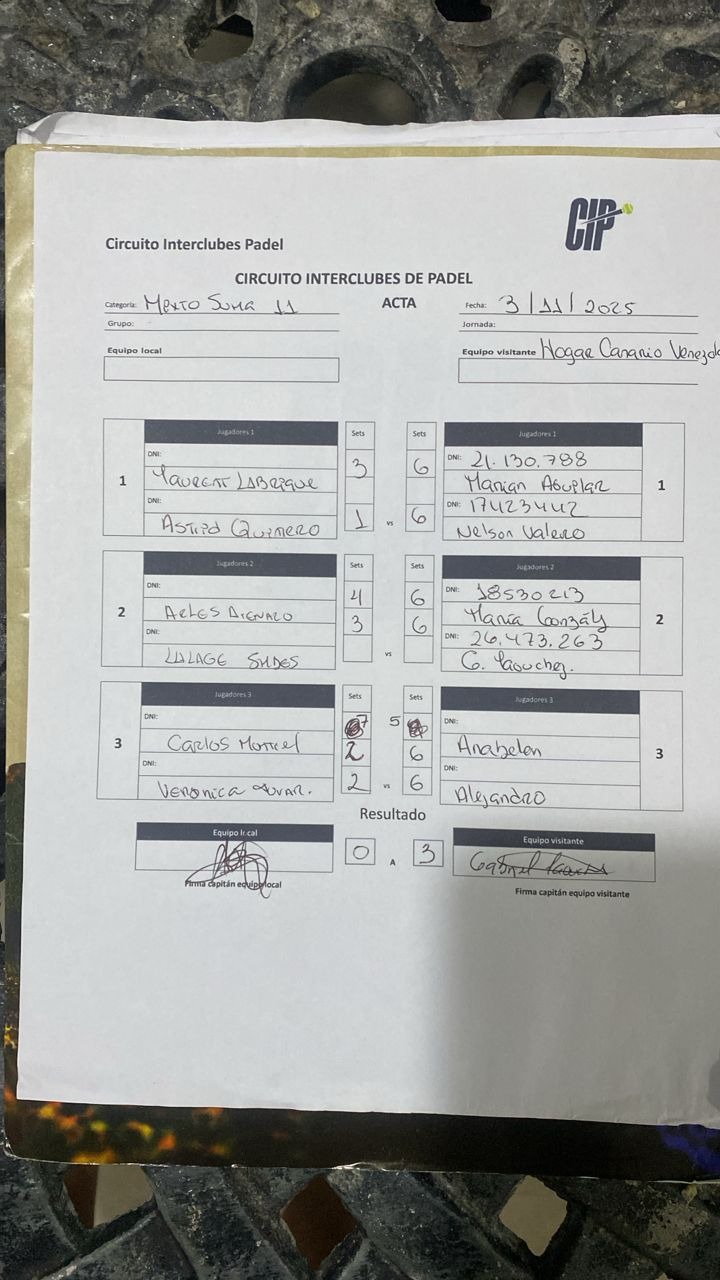 CIP
Circuito Interclubes Padel
CIRCUITO INTERCLUBES DE PADEL
Categoria: Mixto Suma 11
ACTA
Fecha: 3/11/2025
Grupo:
Jornada:
Equipo local
Equipo visitante Hogar Canario Venezol
Jugadores 1 Sets Sets Jugadores 1
DNI: 3 6 DNI: 21.130.788
1 Marian Aguilar 1
DNI: DNI: 17423442
Astrid Quintero 1 vs 6 Nelson Valero
Jugadores 2 Sets Sets Jugadores 2
DNI: 4 6 DNI: 18530213
2 3 6 María Gonzály 2
DNI: DNI: 26.473.263
vs G.
Jugadores 3 Sets Sets Jugadores 3
DNI: 7 5 DNI:
3 Carlos 2 6 Anabelen 3
DNI: DNI:
Veronica 2 vs 6 Alejandro
Resultado
Equipo local 0 A 3 Equipo visitante
Gabriel
Firma capitán equipo local
Firma capitán equipo visitante